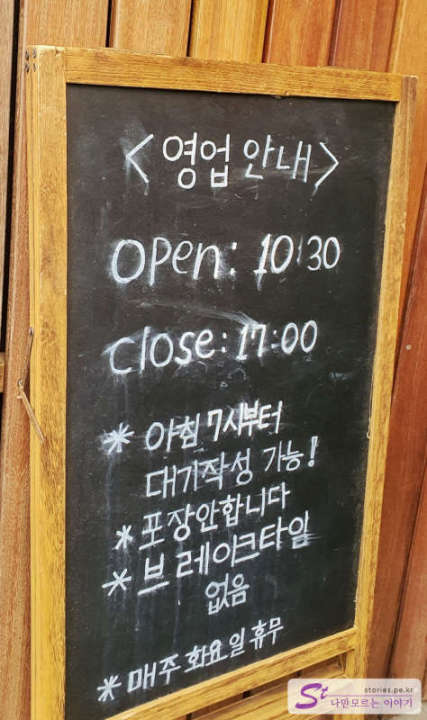 <영업 안내>
OPen: 10:30
close: 17:00
* 아침 7시부터
대기작성 가능!
* 포장안합니다
* 브레이크타임
없음
* 매주 화요일 휴무
St stories.pe.kr
나만모르는 이야기